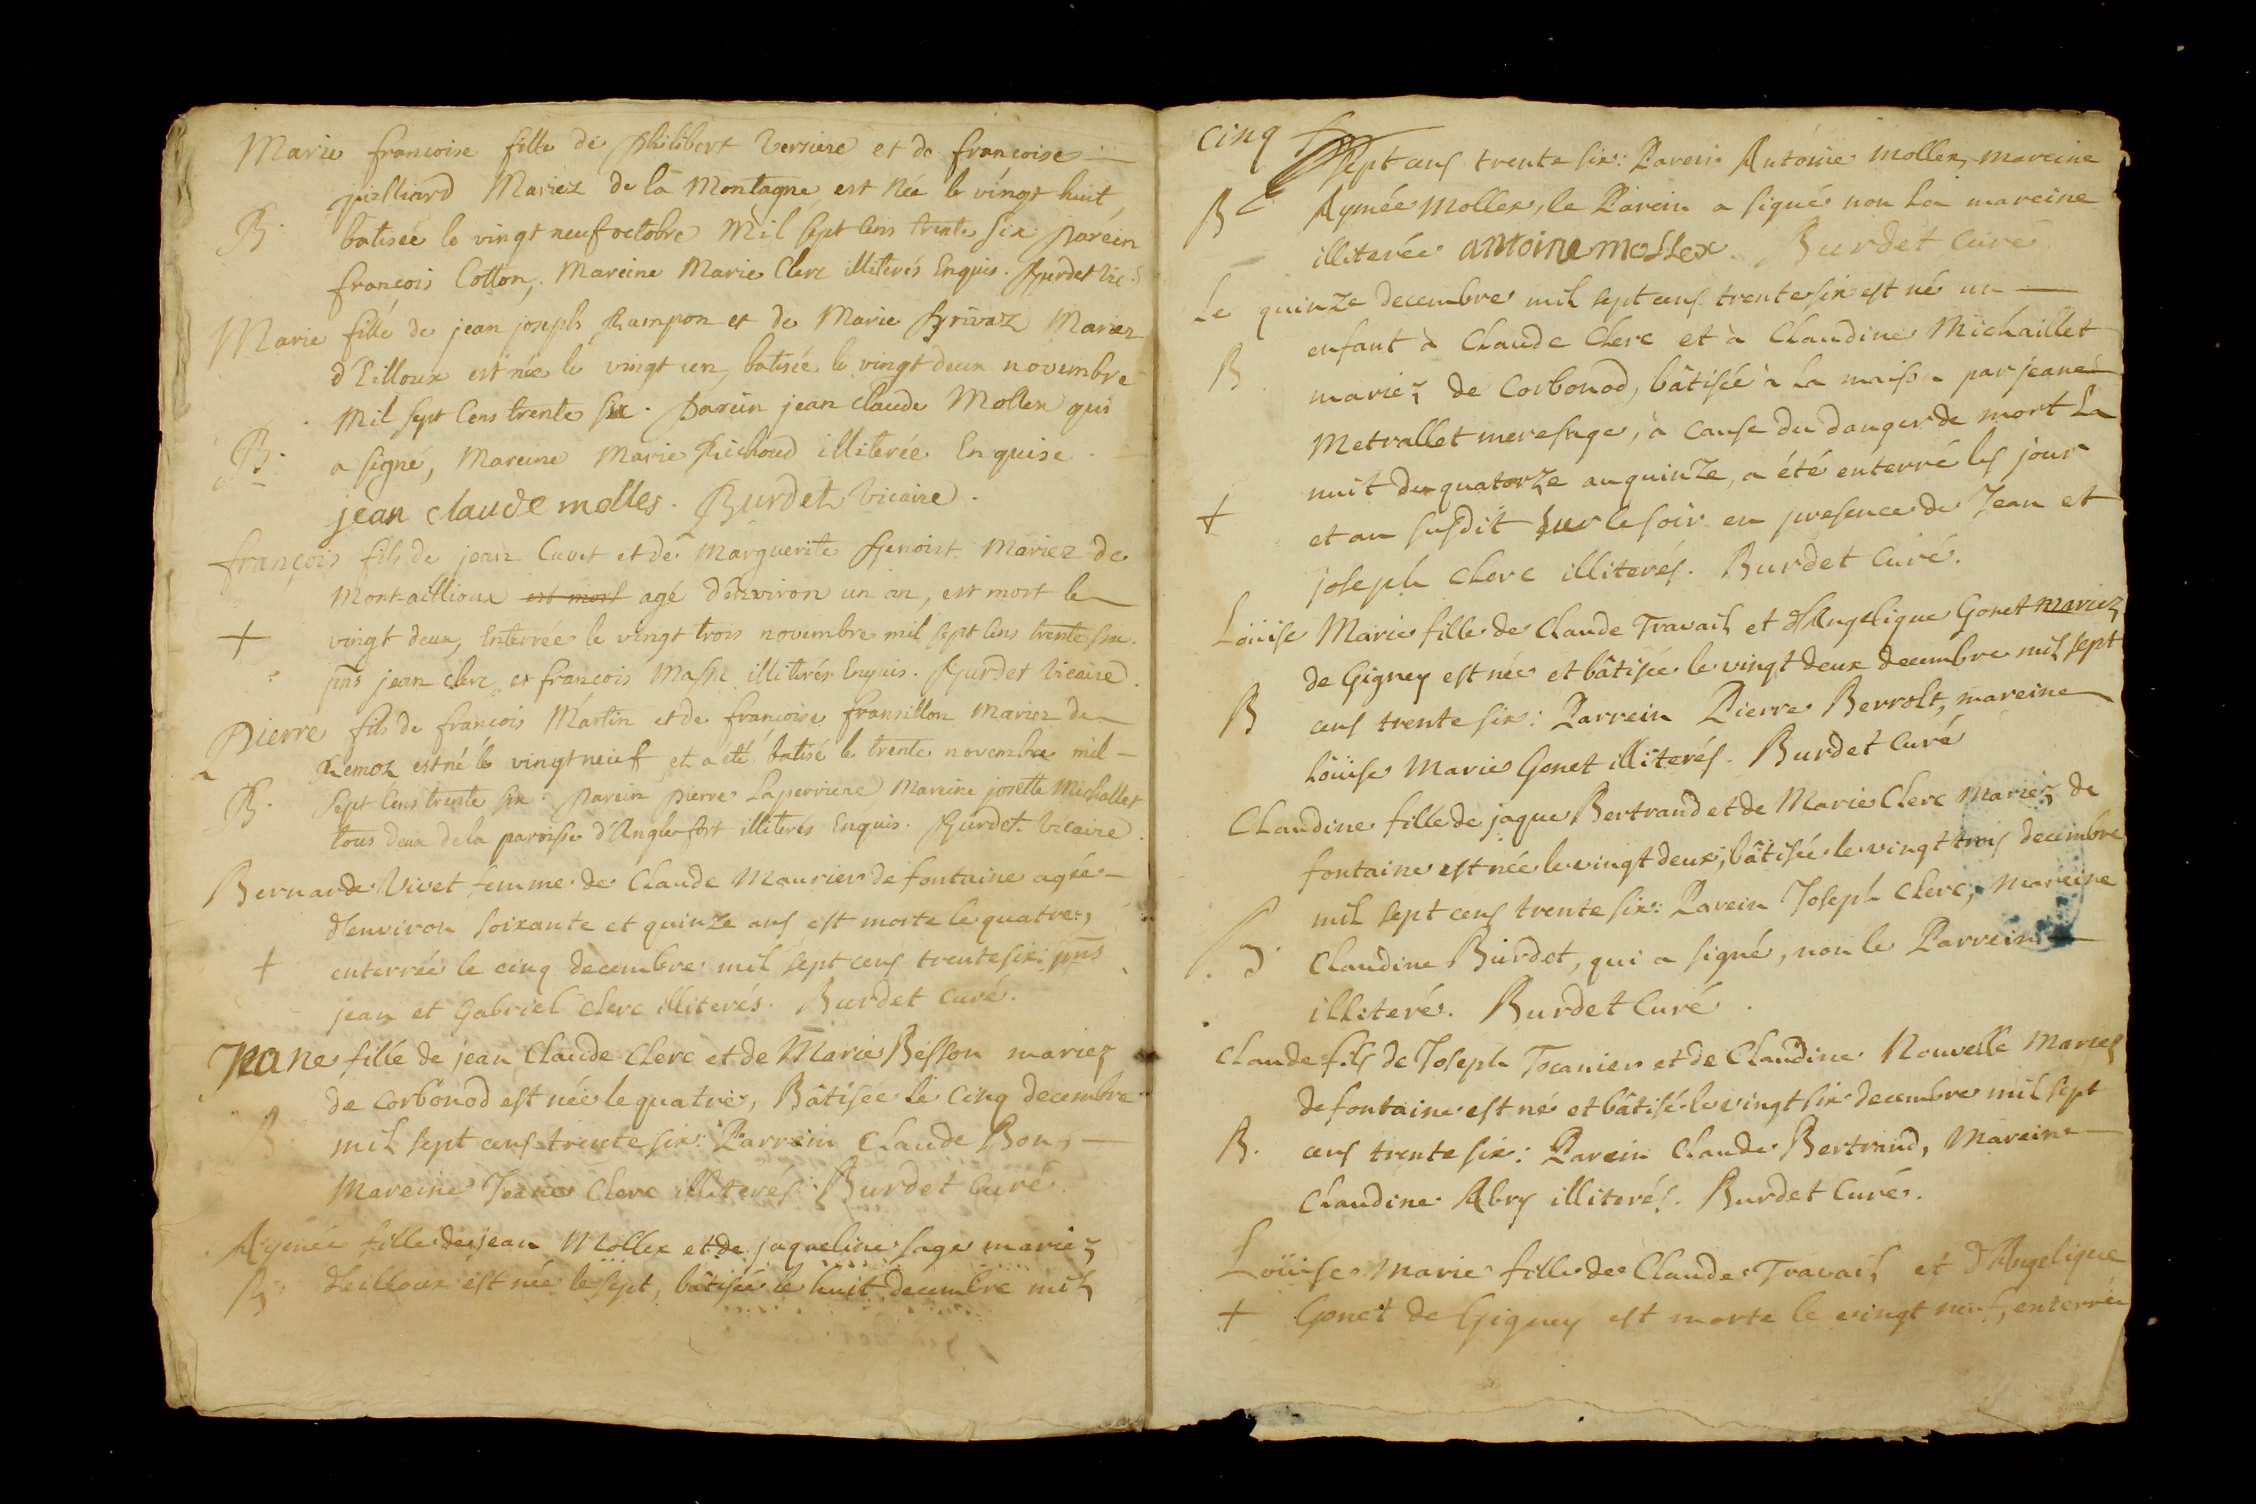 Marie francoise fille de philibert Verriere et de francoise
juilliard Mariez de la Montagne est Née le vingt huit,
B. batisée le vingt neuf octobre Mil sept Cens trente six parein
françois Cotton, Mareine Marie Clerc illiterés Enquis. Burdet Vic.
Marie fille de jean joseph Rampon et de Marie Brivaz Mariez
d'Eilloux est née le vingt un, batisée le vingt deux novembre
Mil sept Cens trente six. Parein jean claude Mollex qui
B. a signé, Mareine Marie Richoud illiterée Enquise.
jean claude molles. Burdet Vicaire.
françois fils de jean Cuvet et de Marguerite Benoist Mariez de
Mont-aillioux est mort agé d'environ un an, est mort le
+ vingt deux, Enterrée le vingt trois novembre mil sept Cens trente six.
pns jean clerc et françois Masse illiterés Enquis. Burdet Vicaire.
Pierre fils de francois Martin et de francoise fransillon Mariez de
Remoz est né le vingt neuf et a été batisé le trente novembre mil
B. sept Cens trente six. Parein pierre Laperriere Mareine josette Michallet
tous deux de la paroisse d'Anglefort illiterés Enquis. Burdet Vicaire.
Bernarde Vivet femme de Claude Maurier de fontaine agée
d'environ soixante et quinze ans est morte le quatre,
+ enterrée le cinq decembre mil sept cens trente six: pns
jean et Gabriel Clerc illiterés. Burdet Curé.
Jeane fille de jean Claude Clerc et de Marie Besson mariez
de Corbonod est née le quatre, Bâtisée le Cinq decembre
B mil sept cens trente six: Parrein Claude Bon,
Mareine Jeane Clerc illiterés. Burdet Curé.
Aymée fille de jean Mollex et de jaqueline sage mariez
B d'eilloux est née le sept, bâtisée le huit decembre mil
cinq
sept cens trente six: Parein Antoine Mollex, mareine
B Aymée Mollex, le Parein a signé non La mareine
illiterée antoine mollex. Burdet Curé
Le quinze decembre mil sept cens trente six est né un
enfant à Claude Clerc et à Claudine Michaillet
B mariez de Corbonod, bâtisée à La maison par jeane
Metrallet mere sage, à cause du danger de mort La
nuit du quatorze au quinze, a été enterré les jour
+ et an susdit sur le soir en presence de Jean et
joseph Clerc illiterés. Burdet Curé.
Loüise Marie fille de Claude Travail et d'Angelique Gonet mariez
de Gigney est née et bâtisée le vingt deux decembre mil sept
B cens trente six: Parrein Pierre Berrolt, mareine
Loüise Marie Gonet illiterés. Burdet Curé
Claudine fille de jaque Bertrand et de Marie Clerc Mariez de
fontaine est née le vingt deux, bâtisée le vingt trois decembre
mil sept cens trente six: Parein Joseph Clerc, Mareine
B. Claudine Burdet, qui a signé, non le Parrein
illiteré. Burdet Curé.
Claude fils de Joseph Tocanier et de Claudine Nouvelle Mariez
de fontaine est né et bâtisé le vingt six decembre mil sept
B. cens trente six: Parein Claude Bertrand, Mareine
Claudine Abry illiterés. Burdet Curé.
Loüise Marie fille de Claude Travail et d'Angelique
+ Gonet de Gigney est morte le vingt neuf, enterrée